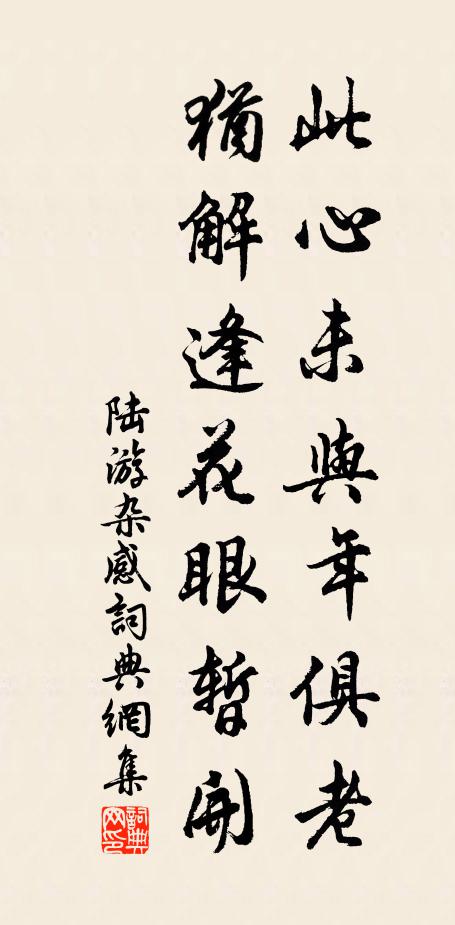 此心未與年俱老
猶解逢花眼暫開
陆游杂感詞典網集
詞典網印